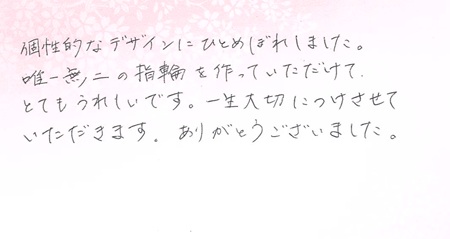 個性的なデザインにひとめぼれしました。
唯一無二の指輪を作っていただけて、
とてもうれしいです。一生大切につけさせて
いただきます。ありがとうございました。